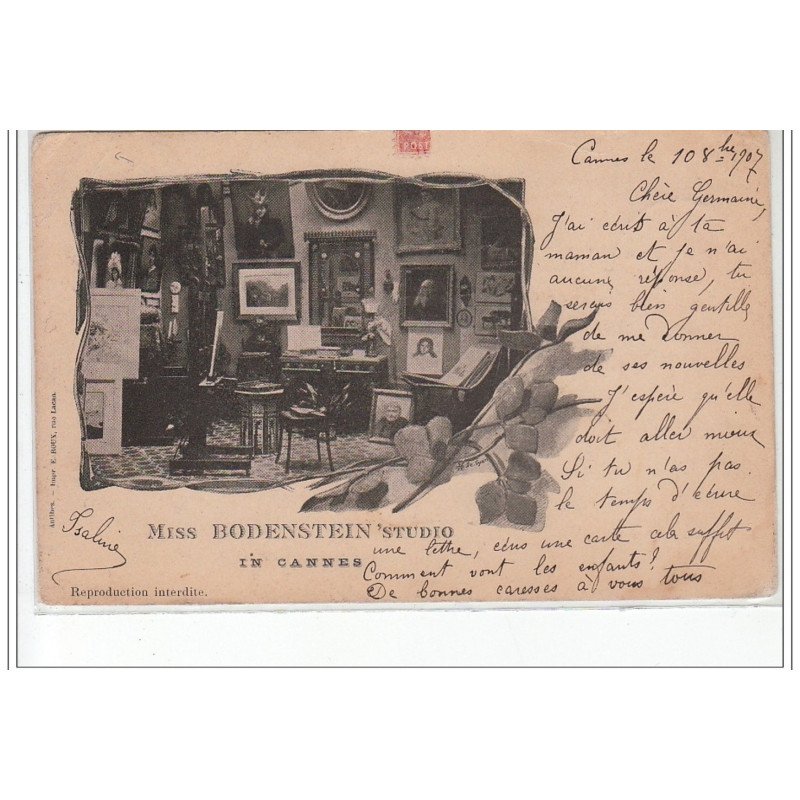 POST
Cannes le 10 8bre 1907
Chère Germaine,
J'ai écrit à ta
maman et je n'ai
aucune réponse, tu
serais bien gentille
de me donner
de ses nouvelles
J'espère qu'elle
doit aller mieux
Si tu n'as pas
le temps d'écrire
une lettre, écris une carte cela suffit
Comment vont les enfants?
De bonnes caresses à vous tous
Isaline
MISS BODENSTEIN 'STUDIO
IN CANNES
Reproduction interdite.
Antibes. - Impr E. ROUX, rue Lacan.